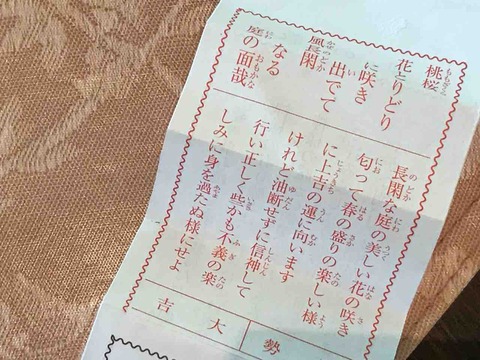 桃桜
花とりどり
に咲き
出でて
風長閑
なる
庭の面哉
長閑な庭の美しい花の咲き
匂って春の盛りの楽しい様
に上吉の運に向います
けれど油断せずに信神して
行い正しく些かも不義の楽
しみに身を過たぬ様にせよ
勢
大吉